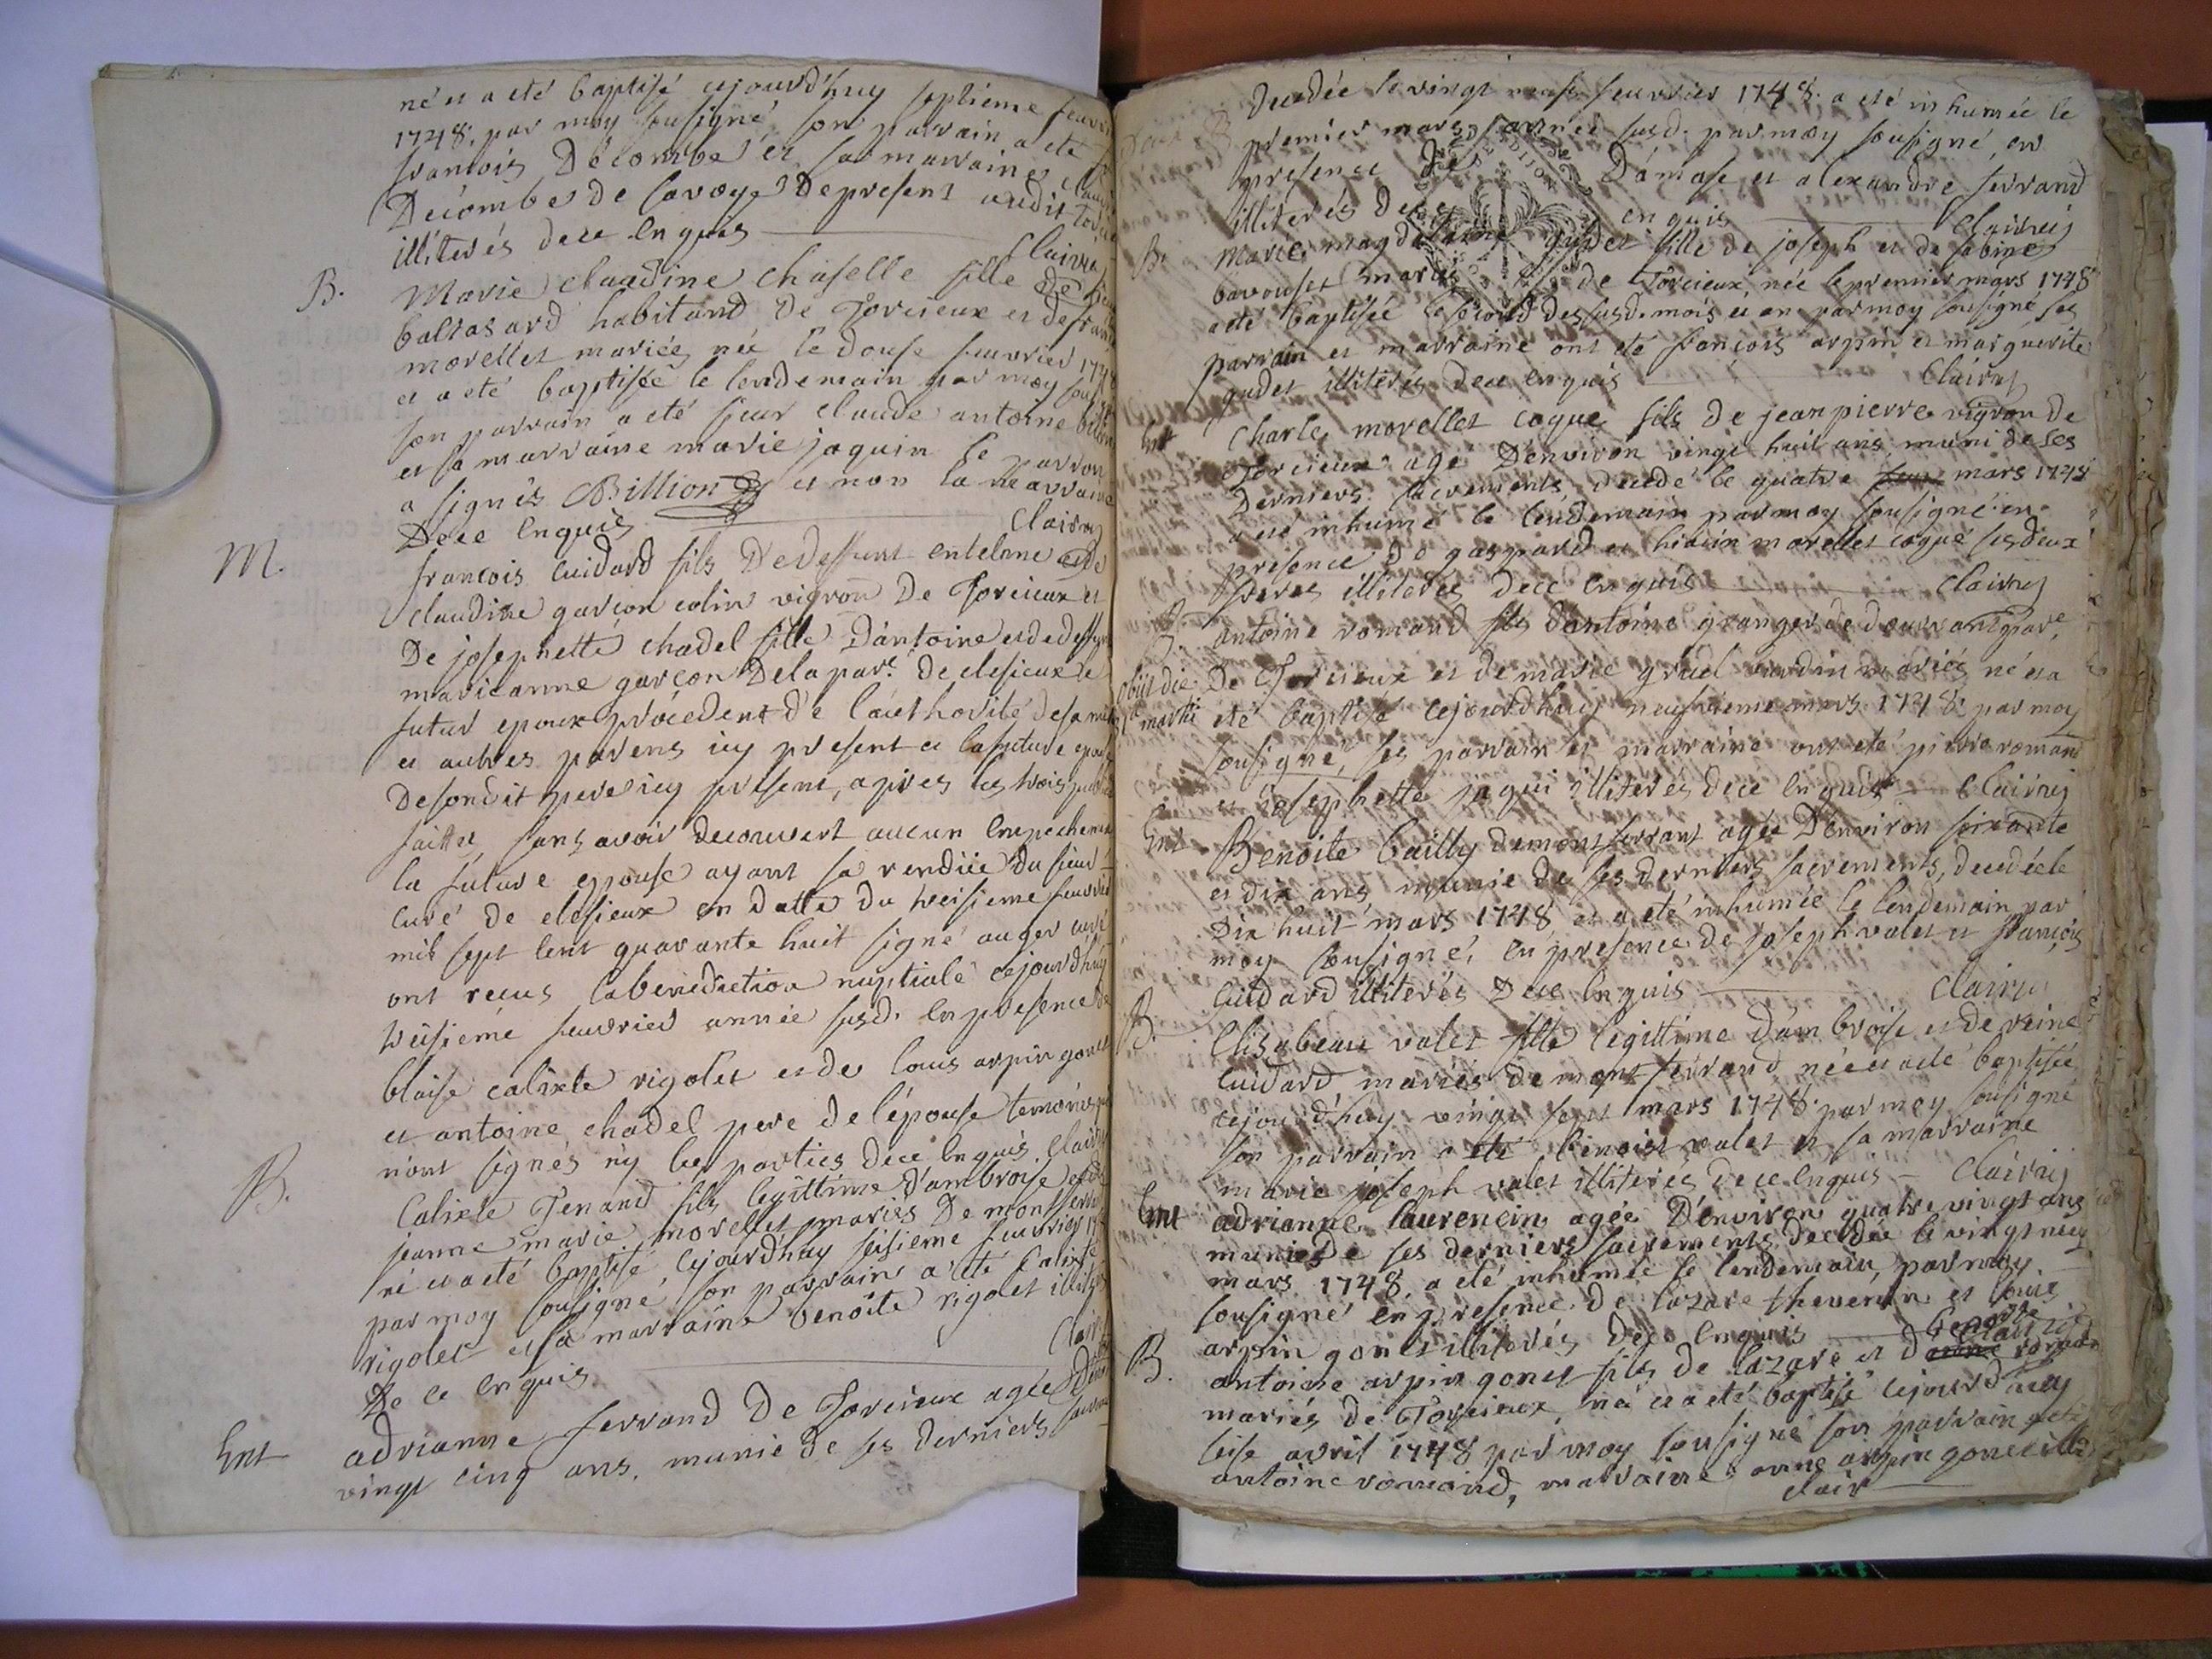 né et a eté baptisé cejourd'huy septieme feuvri
1748. par moy sousigné son parrain a eté
francois Décombe et sa marraine claud
Decombe de savoye de present audit
illiterés dece enquis Clairu
B. Marie claudine chaselle fille de
baltasard habitand de Torcieux et de fran
morellet mariés, née le douse feuvrier 1748
et a eté baptisée le lendemain par moy sous
son parrain a eté sieur claude antoine billon
et sa marraine marie jaquin le parron
a signés Billion et non la marraine
Dece enquis Clairu
M. francois cuidard fils de deffunt entelme et de
claudine garcon colin vigron de Torcieux et
De josephette chadel fille d'antoine et de deffun
marieanne garcon de la par. de clesieux le
futur epoux procedent de l'authorité de sa m
et autres parens icy present et la future epou
de sondit pere icy present, apres les trois pub
faittes sans avoir decouvert aucun enpechem
la future epouse ayant sa rendüe du sieur
curé de clesieux en datte du treisieme feuvrie
mil sept cent quarante huit signé auger curé
ont recus la benediction nuptiale cejourd'huy
treisieme feuvrier année susd. en presence de
blaise calixte rigolet et de louis arpin gonet
et antoine chadel pere de l'épouse temoins qui
n'ont signés n'y les parties dece enquis. Clairu
B. Calixte Tenand fils legittime d'ambroise et de
jeanne marie morellet mariés de montferr
né et a eté baptisé cejourd'huy seisieme feuvrier 174
par moy sousigné, son parrain a eté Calixte
rigolet et sa marraine benoite rigolet illite
De ce enquis Clair
Ent adrianne ferrand de Torcieux agée d'env
vingt cinq ans, munie de ses derniers sacrem
decedée le vingt neuf feuvrier 1748. a eté inhumée le
premier mars année susd. par moy sousigné, en
presence de Damase et alexandre ferrand
illiterés dece enquis Clairuy
B. Marie magdelaine gudet fille de joseph et de sabine
bavouset mariés de Torcieux, née le premier mars 1748
a eté baptisée le second des susd. mois et an par moy sousigné, ses
parrain et marraine ont eté francois arpin et marguerite
gudet illiterés dece enquis Clairuy
Ent Charle morellet coque fils de jean pierre vigron de
Torcieux agé d'environ vingt huit ans, muni de ses
derniers sacrements, decedé le quatre mars 1748
a eté inhumé le lendemain par moy sousigné en
presence de gaspard et morellet coque ses deux
freres illiterés dece enquis Clairuy
B. antoine romand fils d'antoine granger de douvran par.
obiit die De Torcieux et de marie gradel mariés né et a
martii eté baptisé cejourd'huy neufvieme mars 1748 par moy
sousigné, ses parrain et marraine ont eté pierre romand
et josephette jaqui illiterés dece enquis Clairuy
Ent Benoite bailly de montferrant agée d'environ soixante
et dix ans munie de ses derniers sacrements, decedée le
dix huit mars 1748 et a eté inhumée le lendemain par
moy sousigné, en presence de joseph valet et francois
cuidard illiterés Dece enquis Clairu
B. Elisabeau valet fille legittime d'ambroise et de reine
cuidard mariés de mont ferrand née et a eté baptisée
cejourd'huy vingt sept mars 1748 par moy sousigné
son parrain a eté benoist valet et sa marraine
marie joseph valet illiterés dece enquis Clairuy
Ent adrianne laurencin agée d'environ quatre vingt ans
munie de ses derniers sacrements, decedée le vingt neuf
mars 1748, a eté inhumée le lendemain, par moy
sousigné en presence de lazare thevenin et louis
arpin gonet illiterés dece enquis Clairuy
benoite
B. antoine arpin gonet fils de lazare et d anne roman
mariés de Torcieux, né et a eté baptisé cejourd'huy
avril 1748 par moy sousigné son parrain a eté
antoine romand, marraine anne arpin gonet ille
clair